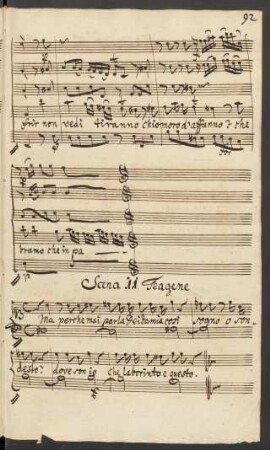 92
frir non vedi tiranno ch'io moro d'affanno e che
bramo che in pa
Scena 11 Teagene
Ma perche mai parla Feitamia così sogno o son
desto? dove son io che laberinto e questo.